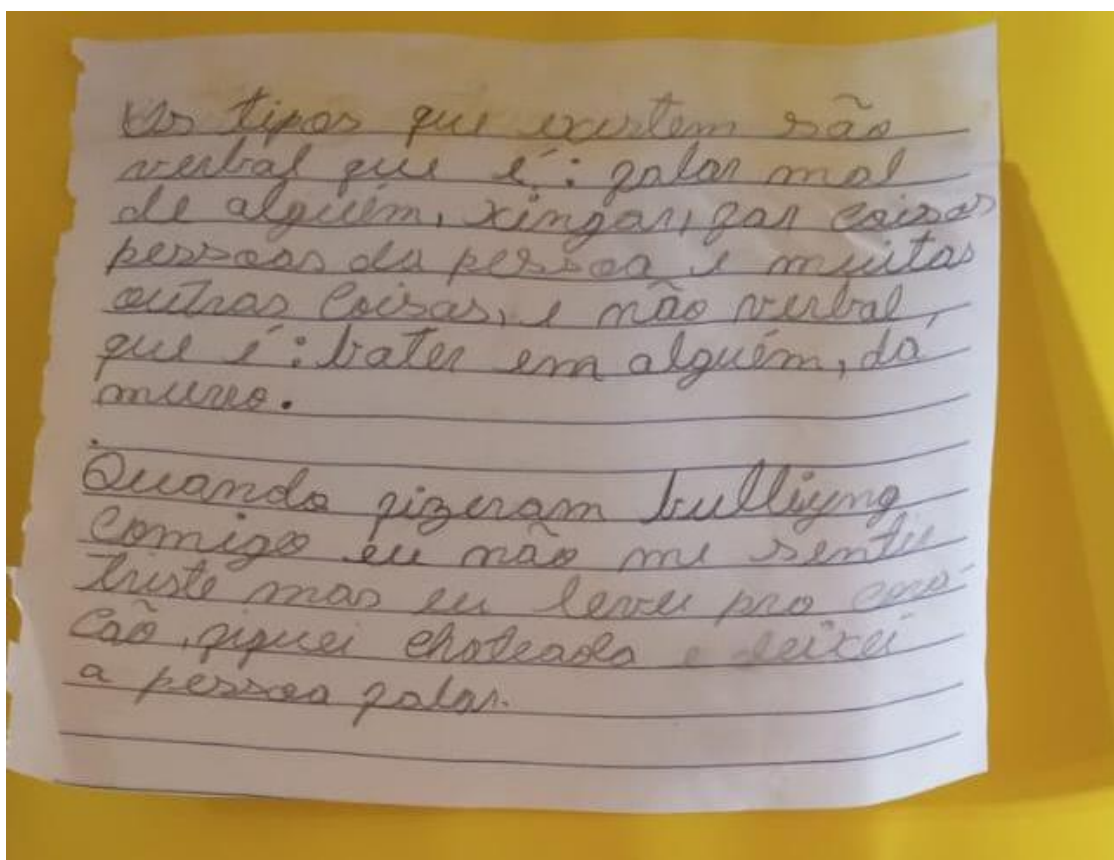 Os tipos que existem são
verbal que é: falar mal
de alguém, xingar, far coisas
pessoas da pessoa e muitas
outras coisas, e não verbal,
que é: bater em alguém, dá
murro.
Quando fizeram bulliyng
comigo eu não me senti
triste mas eu levei pro cora-
cão, fiquei chateada e deixei
a pessoa falar.